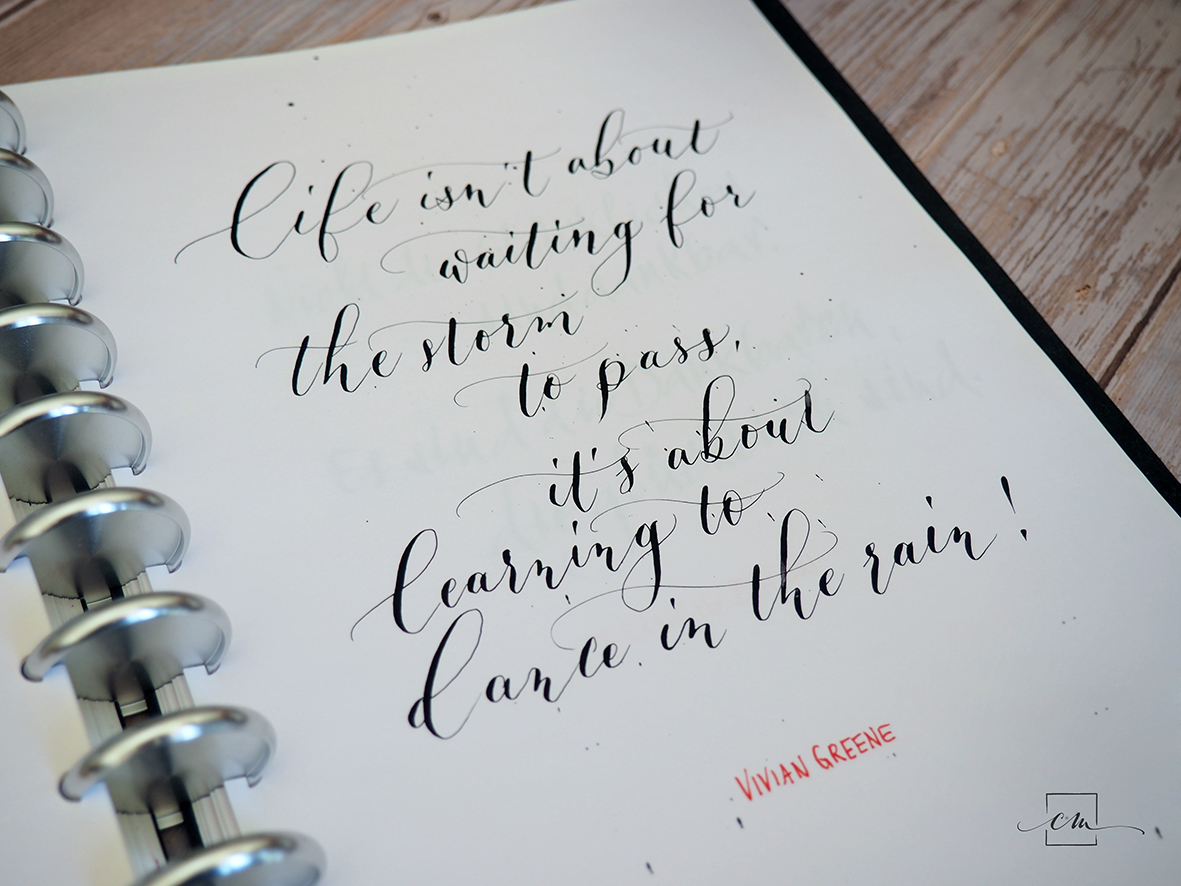 life isn't about
waiting for
the storm
to pass,
it's about
learning to
dance in the rain!
VIVIAN GREENE
cm